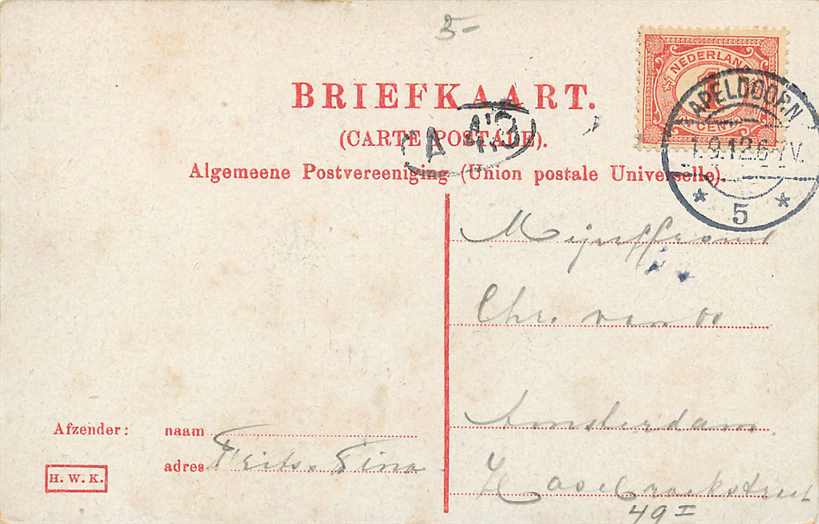 5-
NEDERLAND
CENT
APELDOORN
1.9.12.6-7V.
* 5 *
BRIEFKAART.
(CARTE POSTALE).
A 43
Algemeene Postvereeniging (Union postale Universelle).
Mejuffrouw
Chr. van
Amsterdam.
Hasebroekstraat
49 I
Afzender: naam
adres Frits. Tine
H. W. K.